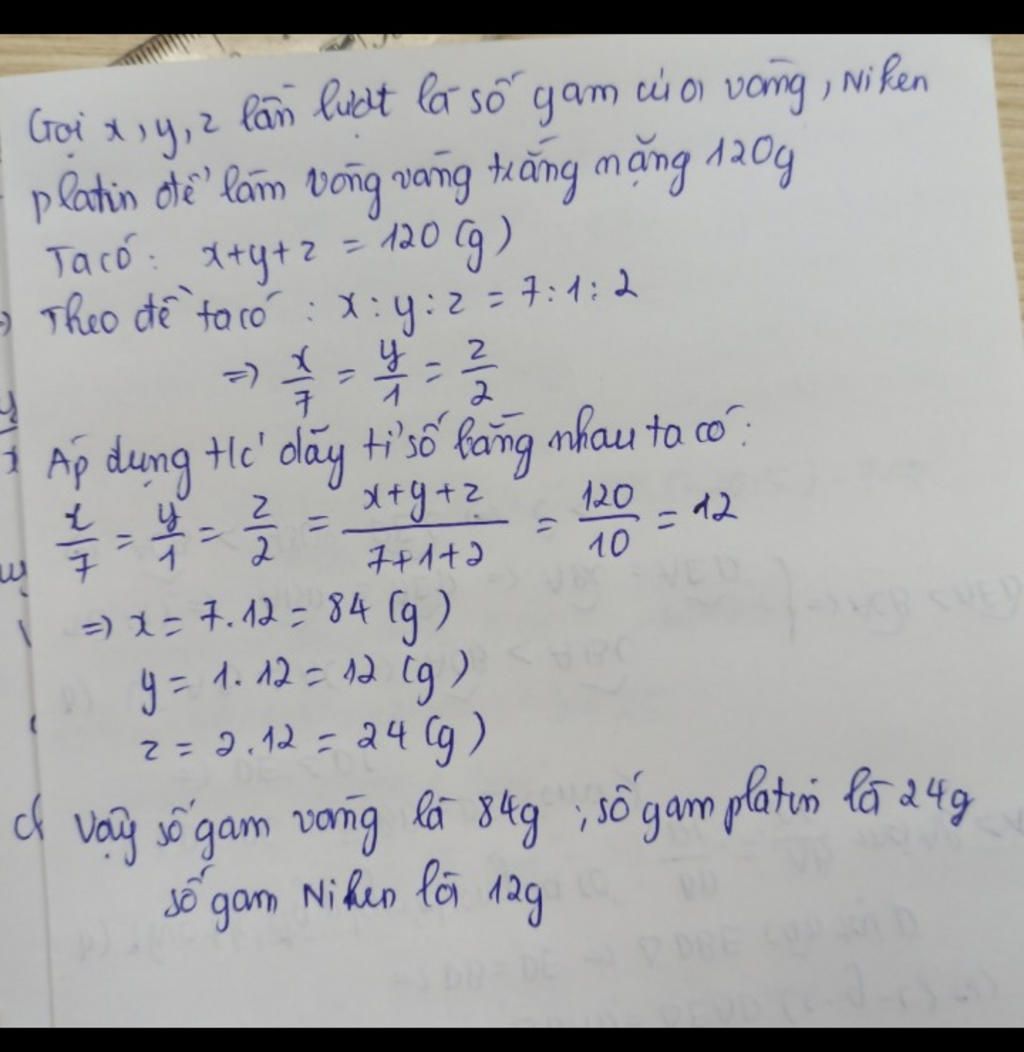 Gọi x, y, z lần lượt là số gam của vàng, Niken
platin để làm vòng vàng trắng nặng 120g
Ta có: x+y+z = 120 (g)
Theo đề ta có: x:y:z = 7:1:2
=> x/7 = y/1 = z/2
Áp dụng t/c dãy tỉ số bằng nhau ta có:
x/7 = y/1 = z/2 = x+y+z/7+1+2 = 120/10 = 12
=> x = 7.12 = 84 (g)
y = 1.12 = 12 (g)
z = 2.12 = 24 (g)
Vậy số gam vàng là 84g; số gam platin là 24g
số gam Niken là 12g